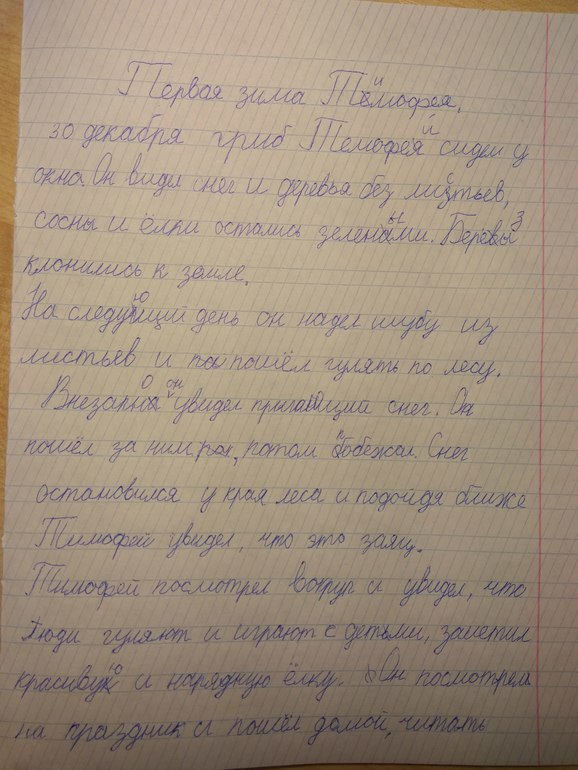 Первая зима Тимофея.
30 декабря гриб Темофей сидел у
окна. Он видел снег и деревья без листьев,
сосны и ёлки остались зелеными. Березы
клонились к земле.
На следующий день он надел шубу из
листьев и пошёл гулять по лесу.
Внезапно он увидел прыгающий снег. Он
пошёл за ним, потом побежал. Снег
остановился у края леса и подойдя ближе
Тимофей увидел, что это заяц.
Тимофей посмотрел вокруг и увидел, что
люди гуляют и играют с детьми, заметил
красивую и нарядную ёлку. Он посмотрел
на праздник и пошёл домой, читать